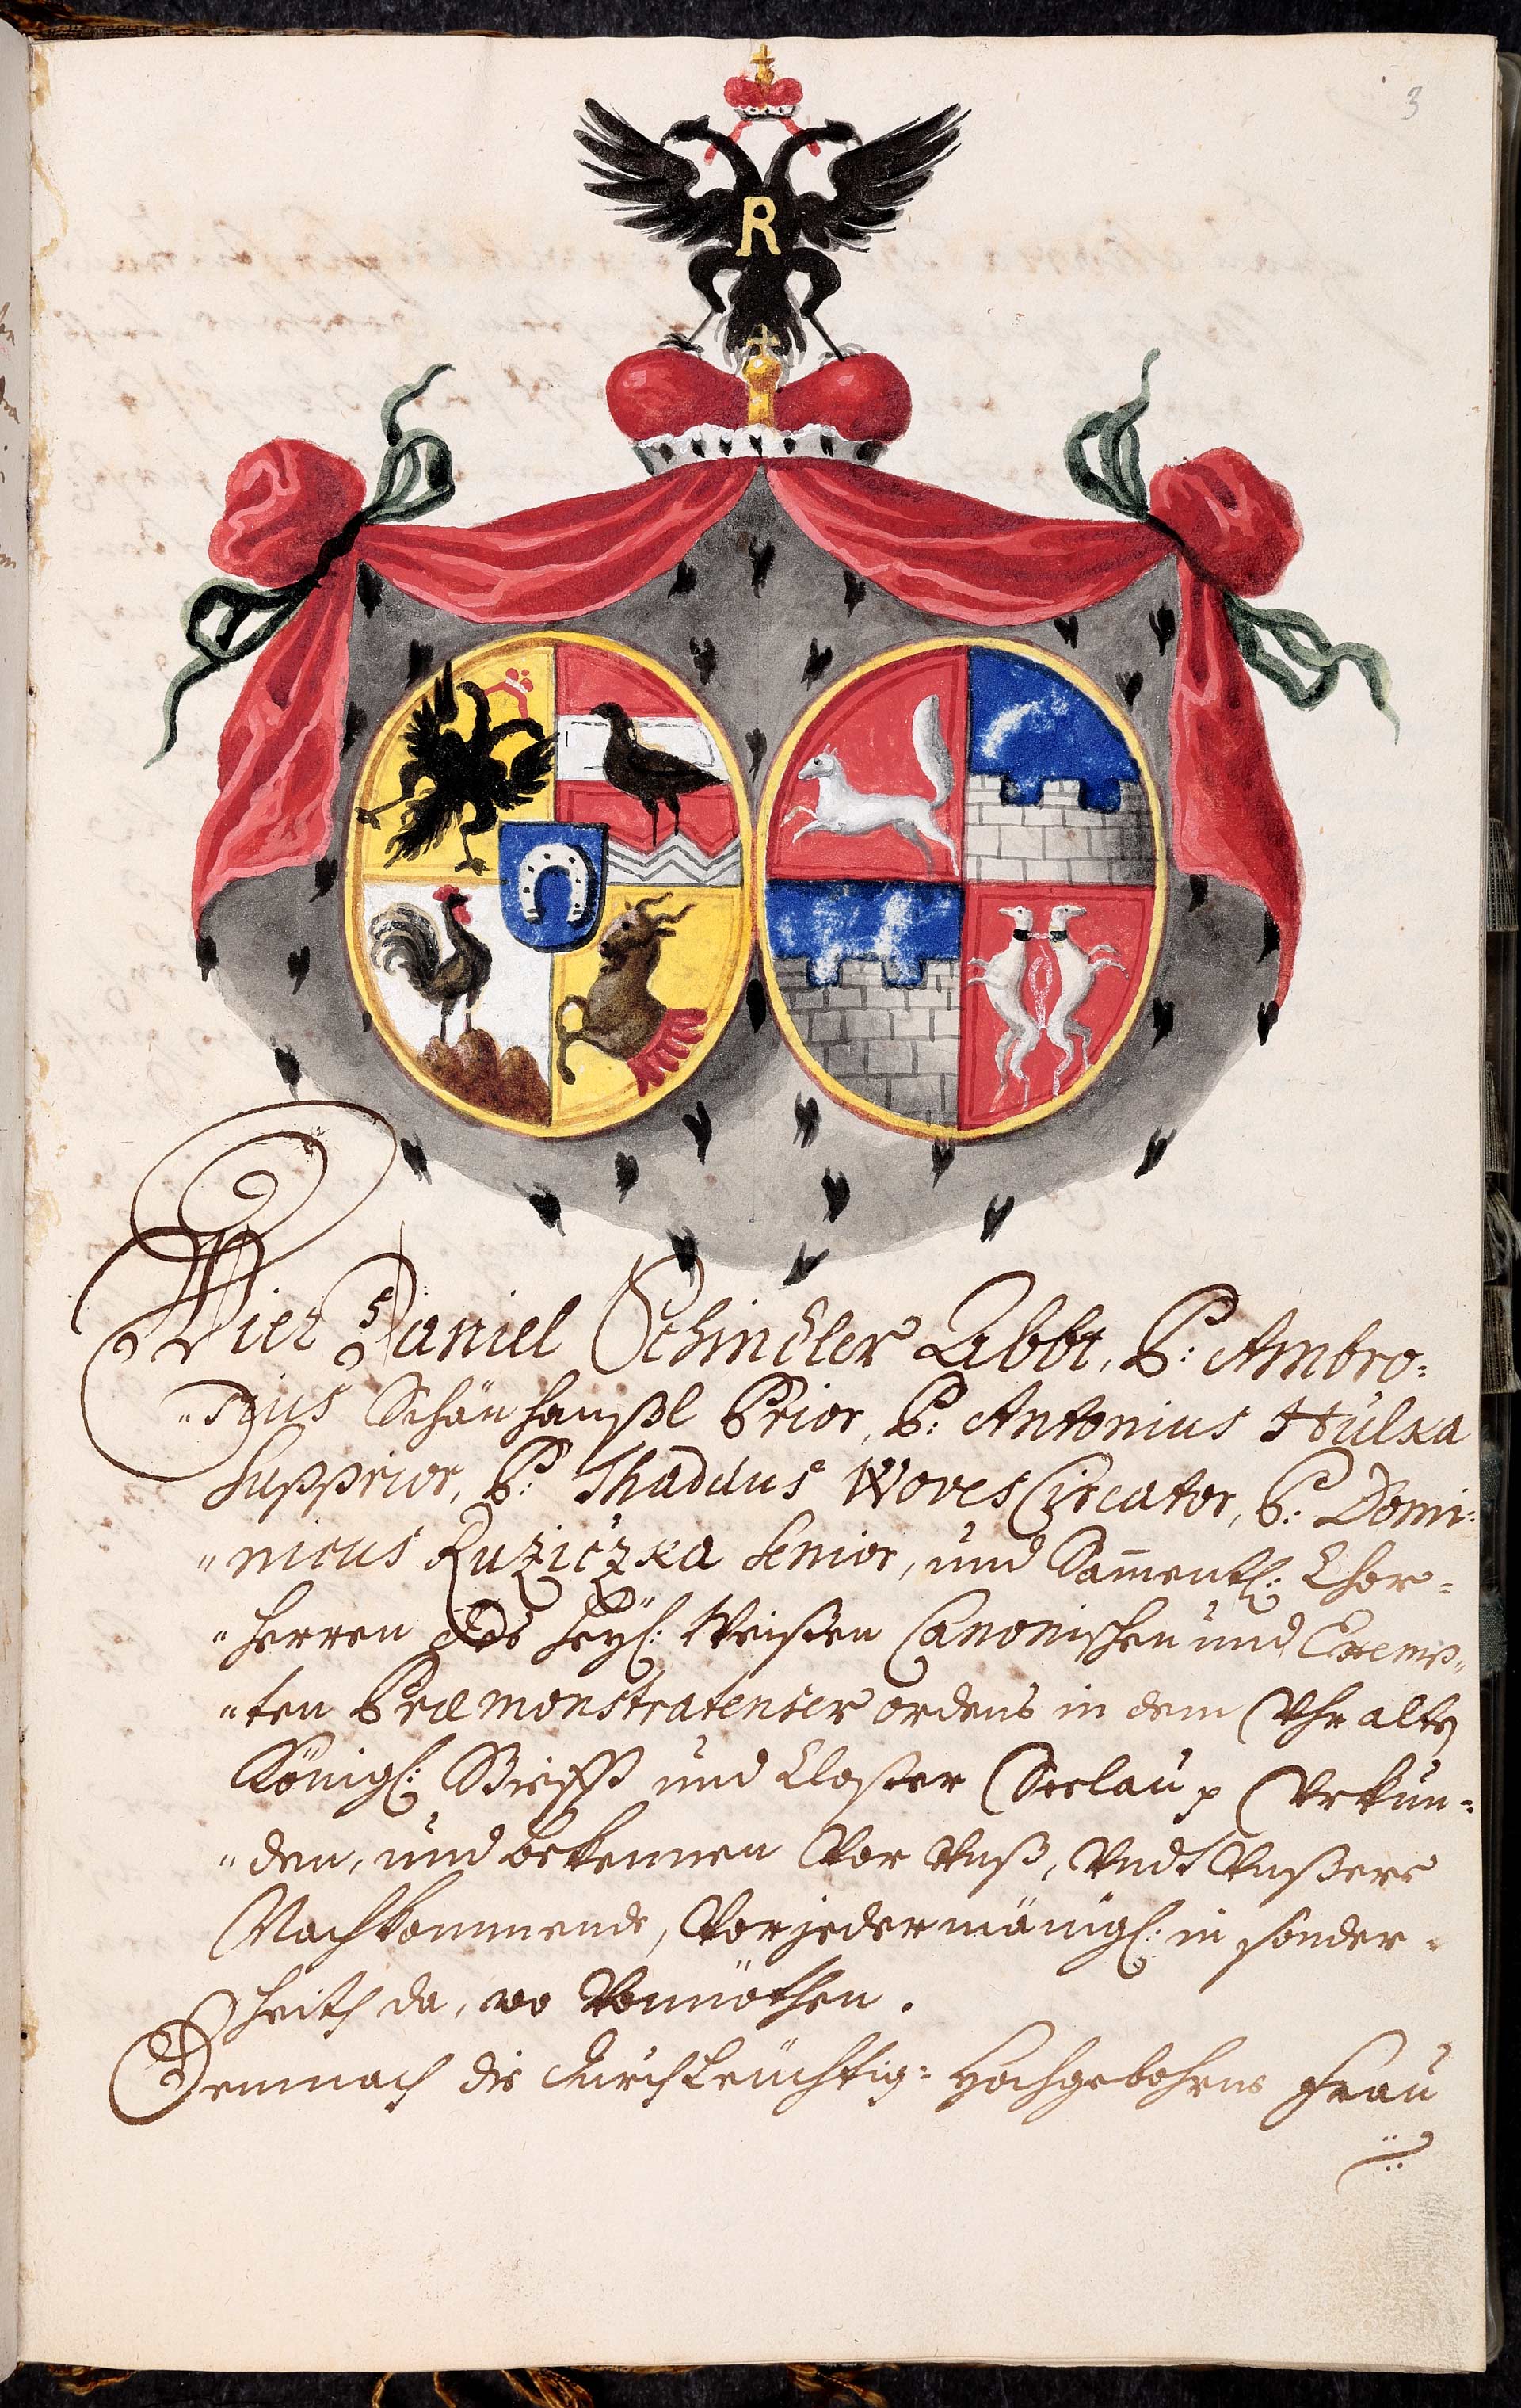 3
R
Wier Daniel Schindler Abbt, P: Ambro=
"sius Schönhansßl Prior, P: Antonius Hulka
Supprior, P: Thadæus Wores Circator, P: Domi=
"nicus Ruziczka Senior, und Sam̄entl: Chor=
"herren des heyl: Weissen Canonischen und Exemp=
"ten Præmonstratenser ordens in dem Vhralten
Königl: Stifft und Closter Seelau p Vrkun=
"den, und bekennen Vor Vnß, Vndt Vnßere
Nachkommende, Vor jedermänigl: in sonder=
heith da, wo Vonnöthen.
Demnach die durchleüchtig= Hochgebohrne Frau